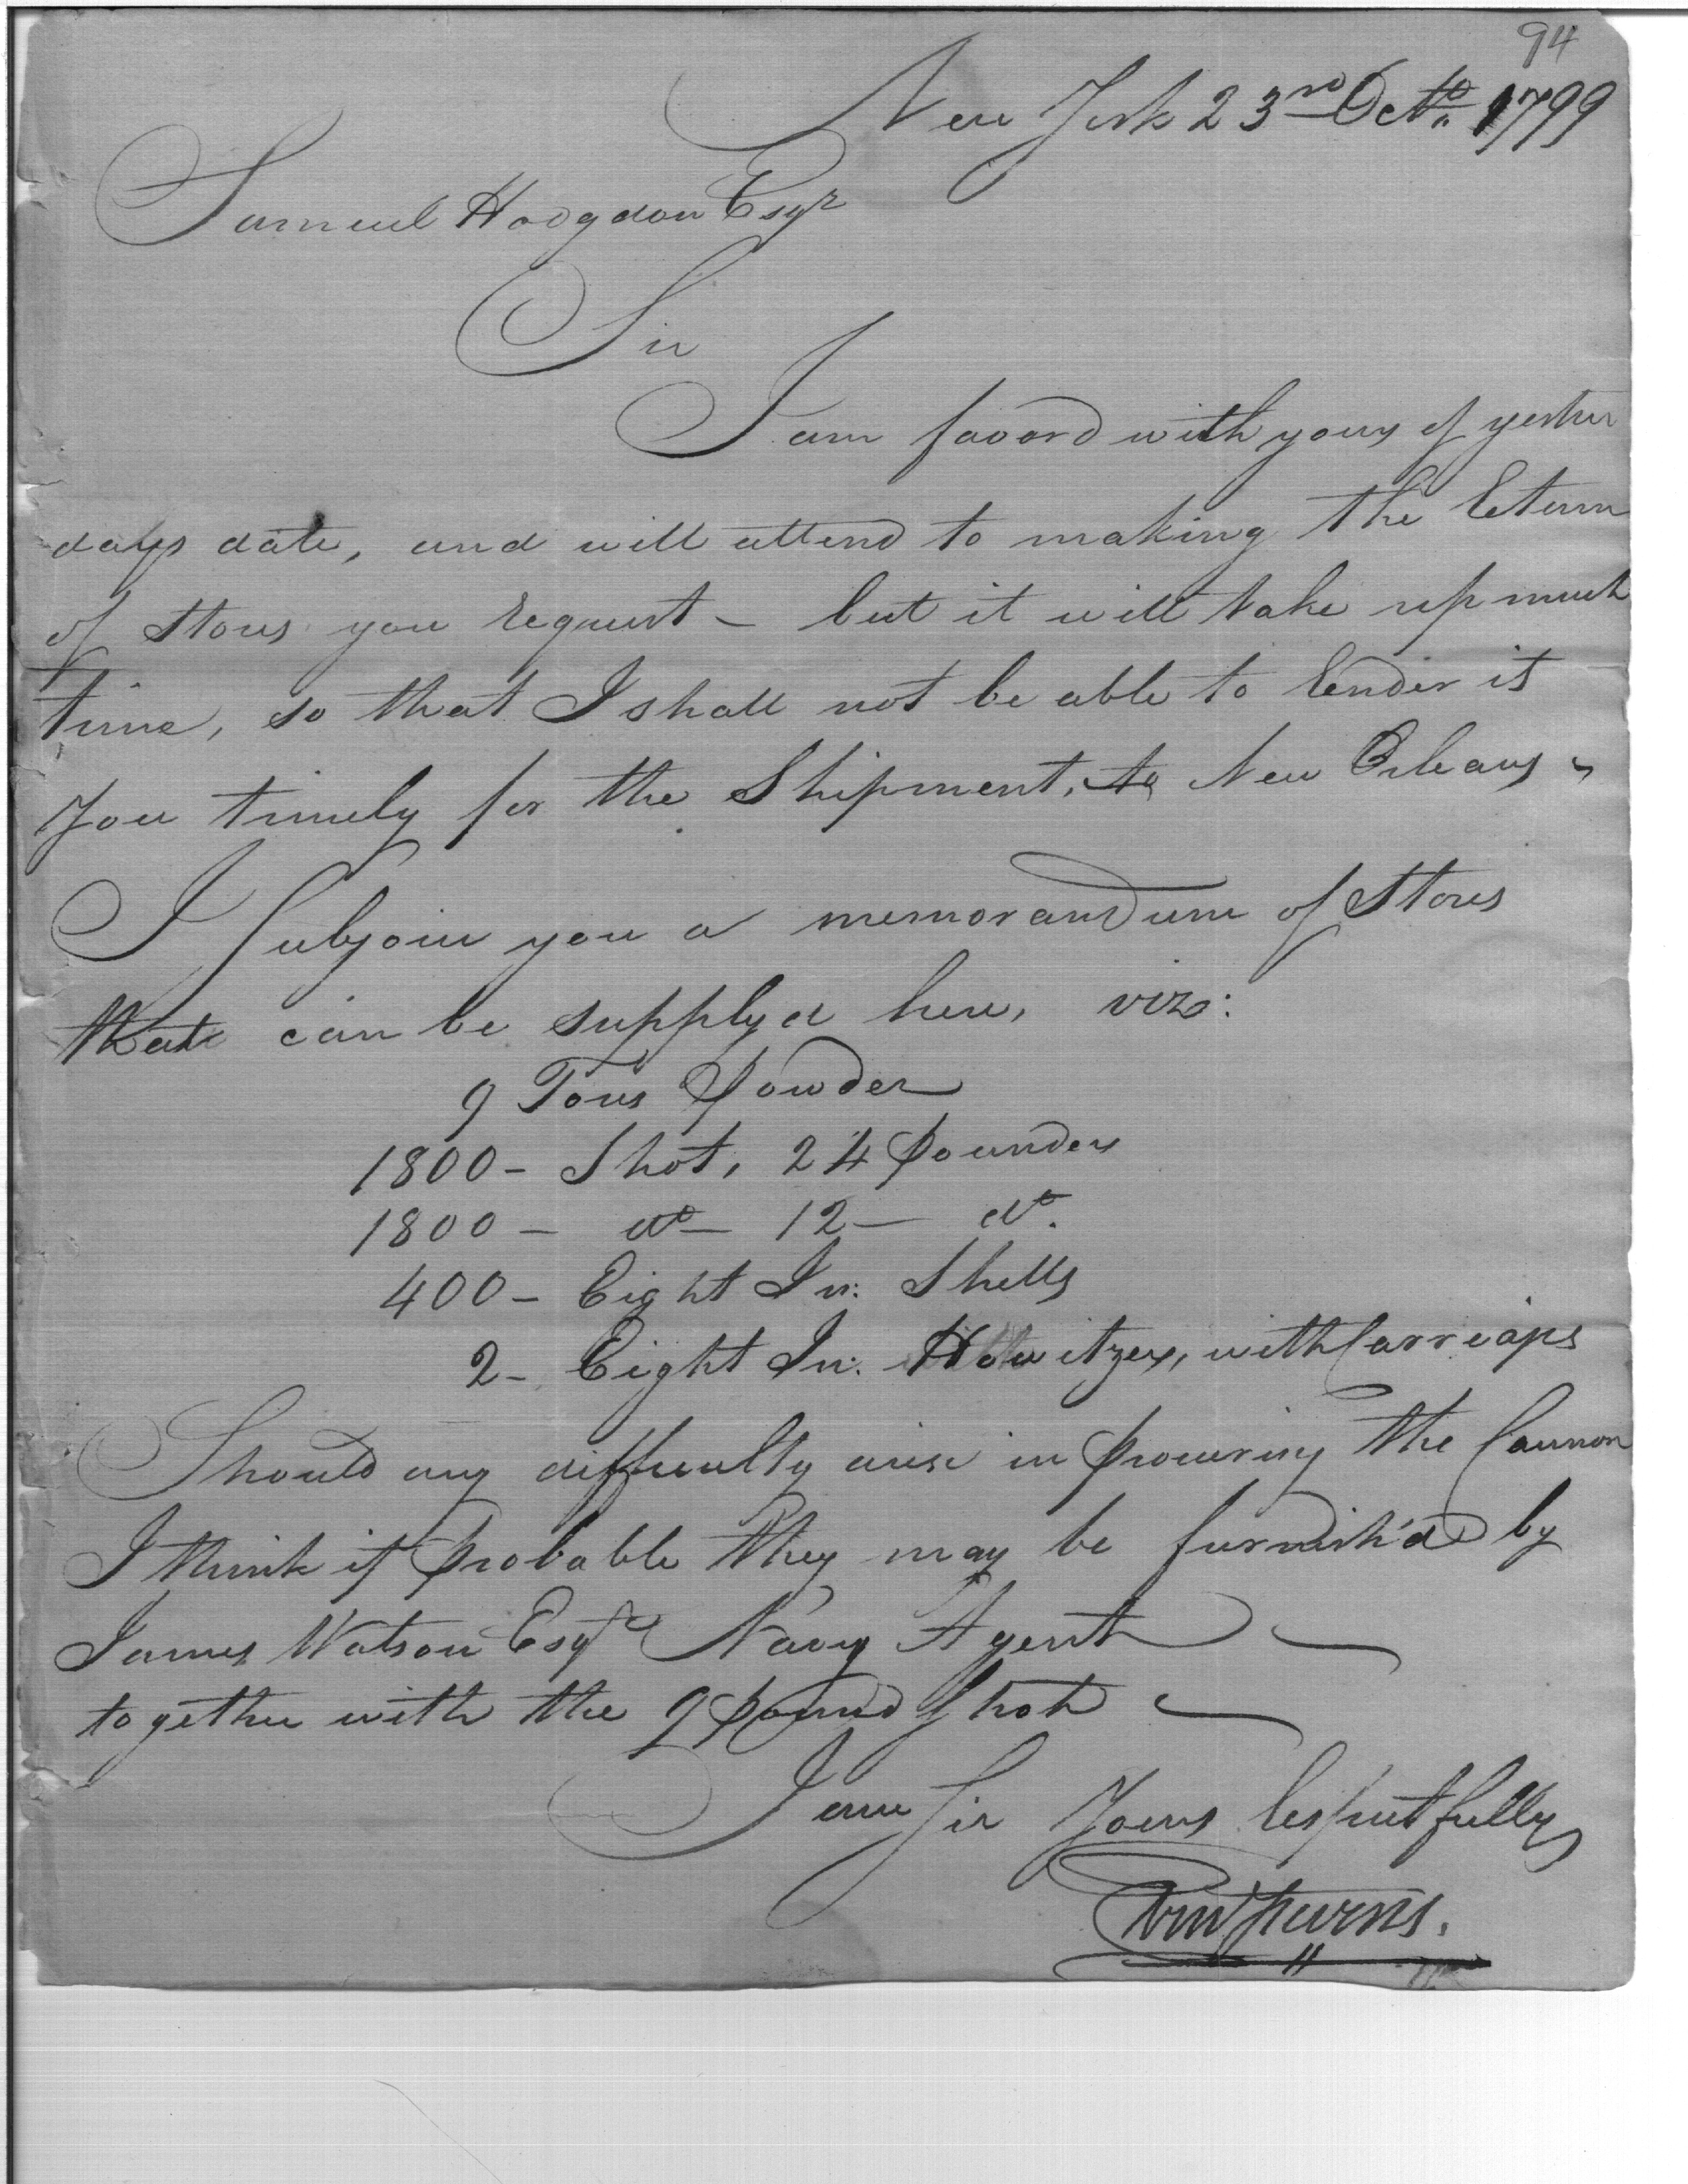 94
New York 23rd Octo. 1799
Samuel Hodgdon Esqr
Sir
I am favord with yours of yester
days date, and will attend to making the Return
of Stores you request – but it will take up much
time, so that I shall not be able to render it
you timely for the Shipment, to New Orleans –
I Subjoin you a memorandum of Stores
that can be supplyd here, viz:
9 Tons Powder
1800 – Shot, 24 pounders
1800 – do – 12 – do.
400 – Eight In: Shells
2 – Eight In: Howitzers, with Carriages
Should any difficulty arise in procuring the Cannon
I think it probable they may be furnish'd by
James Watson Esqr Navy Agent
together with the 9 pound Shot
I am Sir Yours respectfully